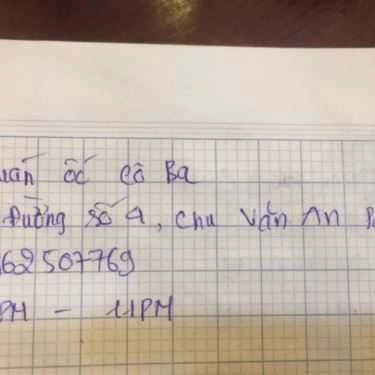 uán ốc cô Ba
Đường số 4, Chu Văn An
62507769
PM - 11PM